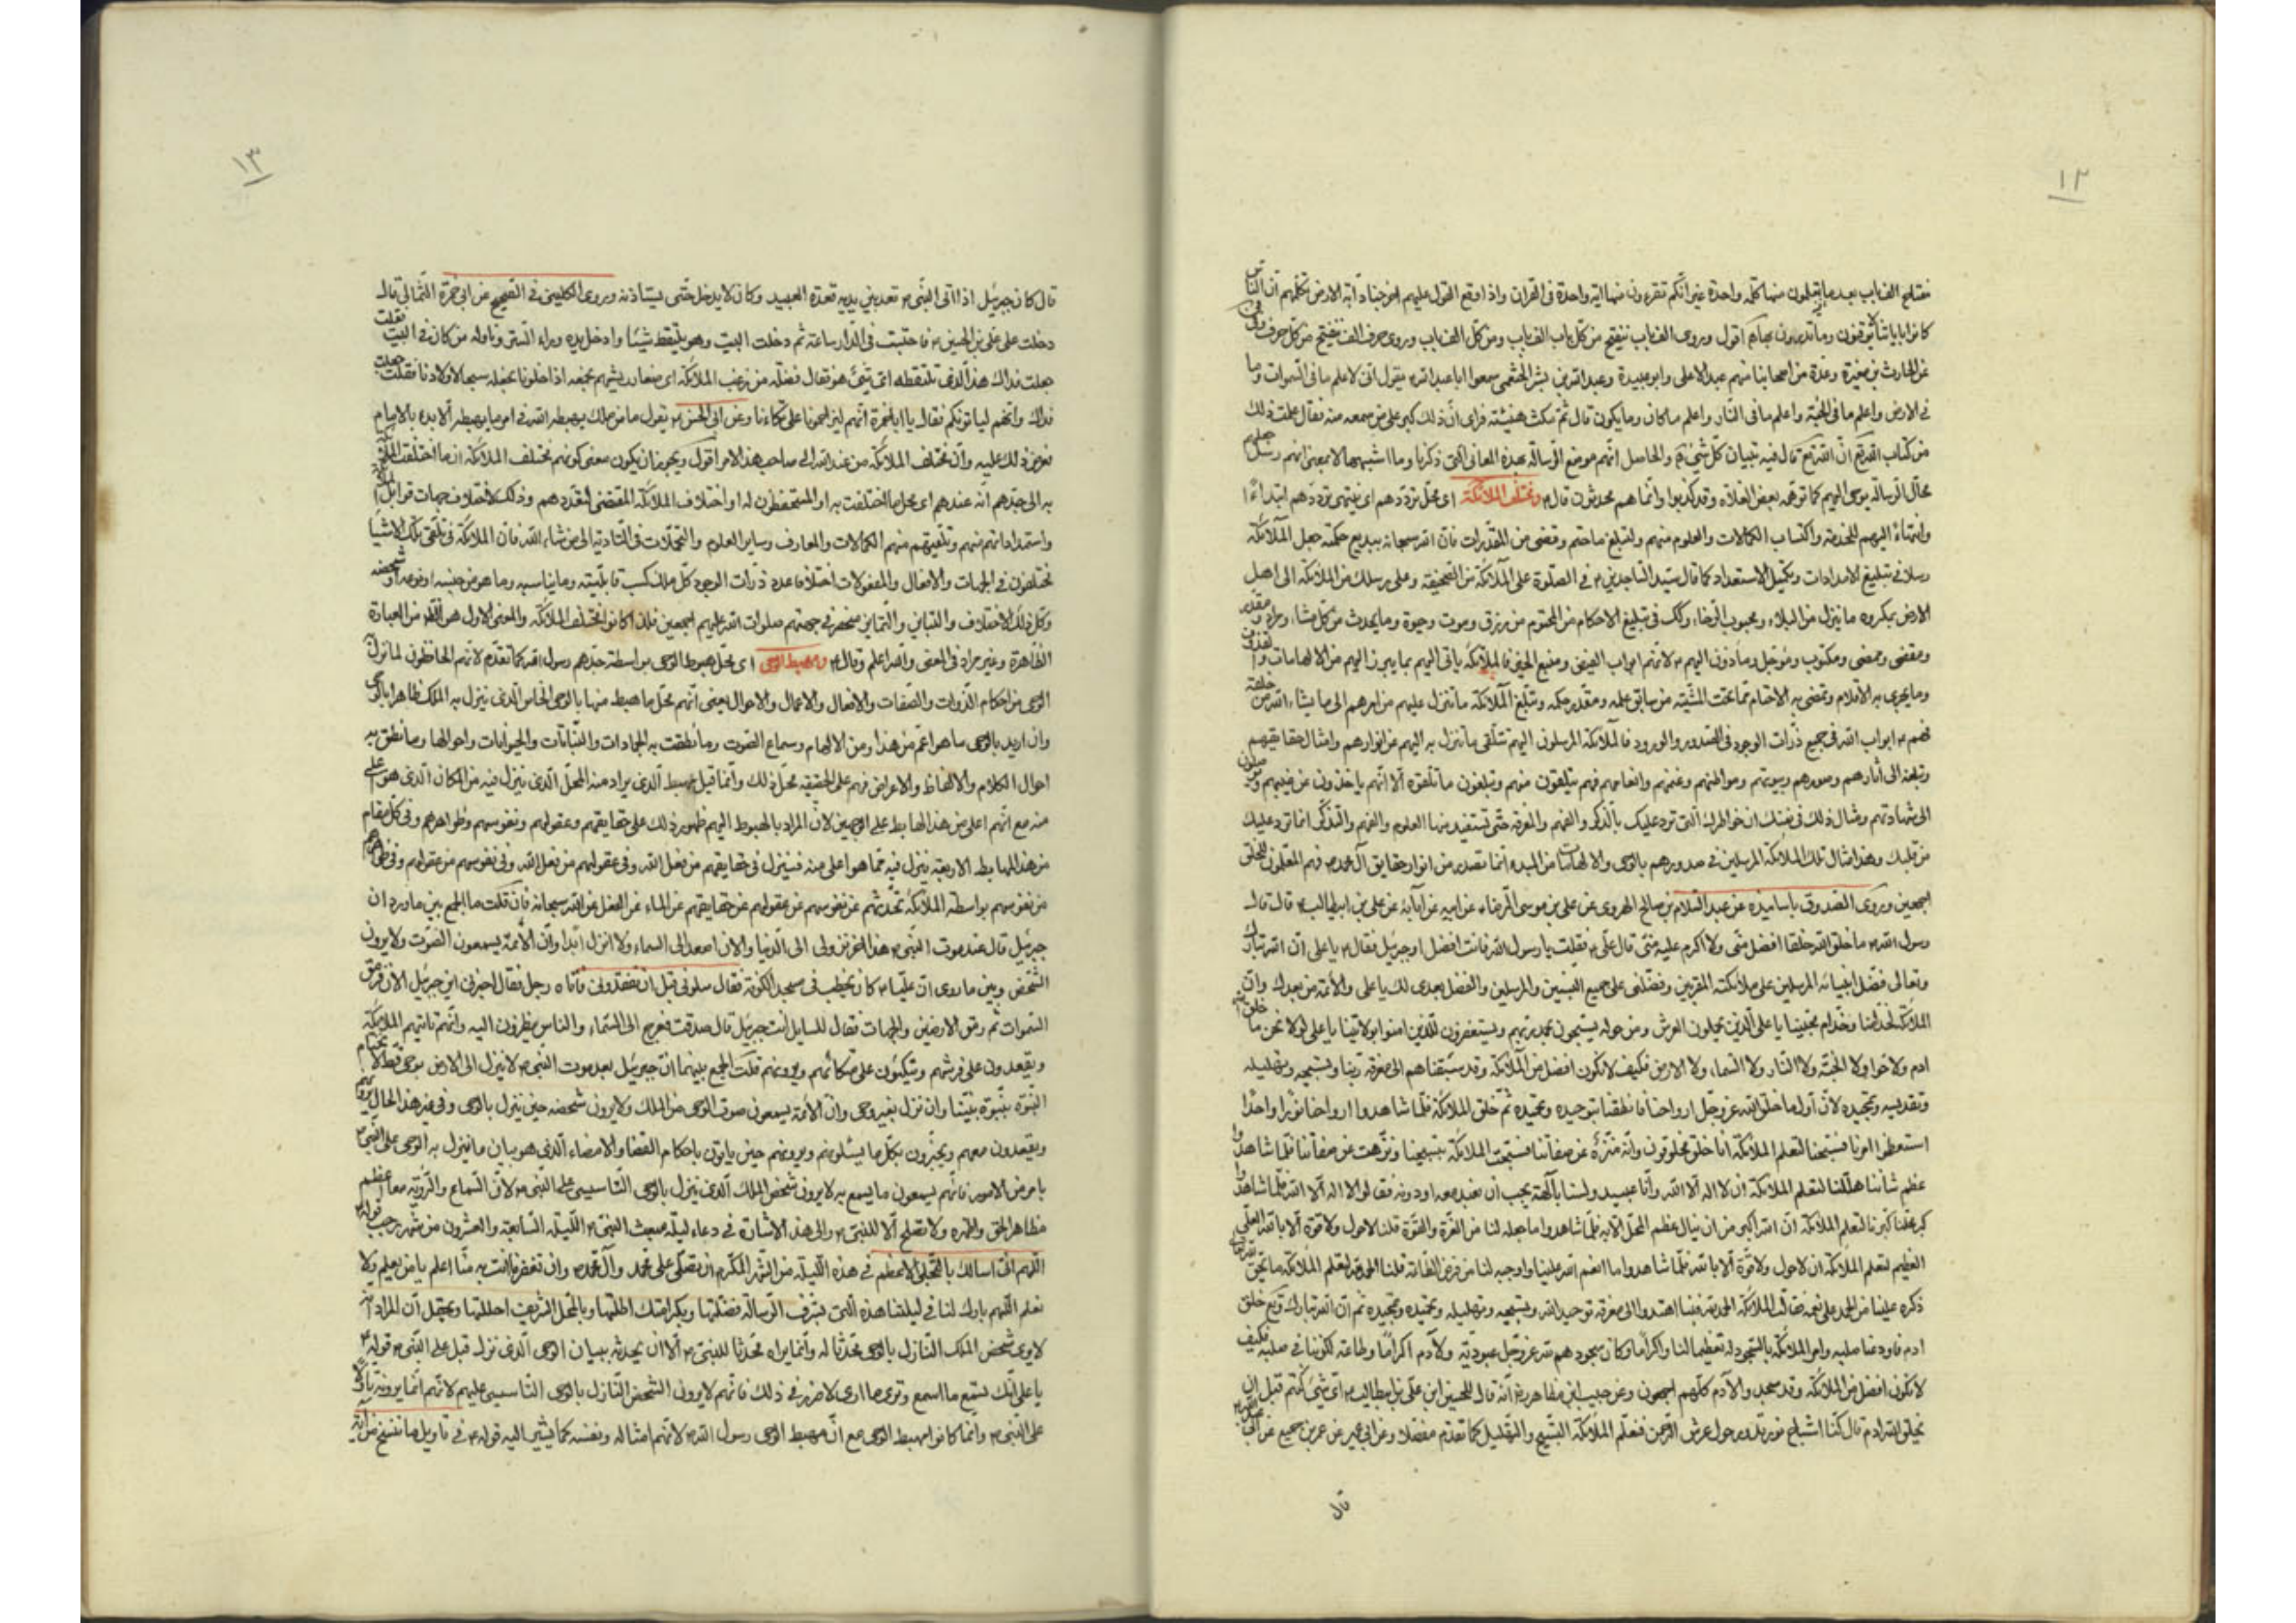 ١٢
نفتتح الف باب بعد ما يقبلون منها كلمة واحدة غير انكم تقرءون منها اية واحدة في القران واذا وقع القول عليهم اخرجنا دابة الارض تكلمهم ان الناس
كانوا باياتنا لا يوقنون وما تدرونها اقول وروى الف باب يفتح من كل باب الف باب ومن كل الف باب وروى حرف الف يفتح من كل حرف
عن الحارث بن مغيرة وعدة من اصحابنا منهم عبد الاعلى وابو عبيدة وعبد الله بن بشر الخثعمي سمعوا ابا عبد الله يقول اني لاعلم ما في السموات وما
في الارض واعلم ما في الجنة واعلم ما في النار واعلم ما كان وما يكون قال ثم مكث هنيئة فراى ان ذلك كبر على من سمعه منه فقال علمت ذلك
من كتاب الله ان الله تع قال فيه تبيان كل شيء والحاصل انهم موضع الرسالة بهذه المعاني التي ذكرنا وما اشبهها لا بمعنى انهم رسل
محال الرسالة يوحى اليهم كما توهمه بعض الغلاة وقد كذبوا وانما هم محدثون قال ومختلف الملائكة اي محل ترددهم اي ينتهي ترددهم ابتداءً
وانتهاءً اليهم للخدمة واكتساب الكمالات والعلوم منهم ولتبلغ ما حتم وقضى من المقدرات فان الله سبحانه ببديع حكمته جعل الملائكة
رسلا في تبليغ الامدادات وتكميل الاستعداد كما قال سيد الساجدين في الصلوة على الملائكة من الصحيفة وعلى رسلك من الملائكة الى اهل
الارض بمكروه ما ينزل من البلاء ومحبوب الرخاء وكك في تبليغ الاحكام من المحتوم من رزق وموت وحيوة وما يحدث من كل مشاء ومراد ومقدر
ومقضى وممضى ومكتوب ومؤجل وماذون اليهم لانهم ابواب الفيض ومنبع الخير فالملائكة ياتي اليهم بما يبرز اليهم من الالهامات
وما يجري به الاقلام وتمضى به الاحتام مما تحت المشية من سابق علمه ومقدر حكمه وتبلغ الملائكة ما تنزل عليهم من امرهم الى ما يشاء الله من خلقه
فهم ابواب الله في جميع ذرات الوجود في الصدور والورود فالملائكة المرسلون اليهم تتلقى ما تنزل به اليهم من انوارهم وامثال حقايقهم
وتبلغه الى آثارهم وصورهم وبيوتهم ومواطنهم وغنمهم وانعامهم فهم يتلقون منهم ويبلغون ما تلقوه الا انهم ياخذون عن غيبهم
الى شهادتهم ومثال ذلك في نفسك ان خواطرك التي ترد عليك بالذكر والفهم والمعرفة حتى تستفيد منها العلوم والفهم والتذكر انما ترد عليك
من قلبك وهذا مثال تلك الملائكة المرسلين في صدورهم بالوحى والالهامات من المبدء انما تصدر من انوار حقايق آل محمد فهم المعلمون للخلق
اجمعين وروى الصدوق باسانيده عن عبد السلام بن صالح الهروي عن علي بن موسى الرضاء عن ابيه عن آبائه عن علي بن ابيطالب قال قال
رسول الله ما خلق الله خلقا افضل مني ولا اكرم عليه مني قال علي فقلت يا رسول الله فانت افضل او جبرئيل فقال يا علي ان الله تبارك
وتعالى فضل انبيائه المرسلين على ملائكته المقربين وفضلني على جميع النبيين والمرسلين والفضل بعدي لك يا علي والائمة من بعدك وان
الملائكة لخدامنا وخدام محبينا يا علي الذين يحملون العرش ومن حوله يسبحون بحمد ربهم ويستغفرون للذين امنوا بولايتنا يا علي لولا نحن ما خلق الله
ادم ولا حوا ولا الجنة ولا النار ولا السماء ولا الارض فكيف لا نكون افضل من الملائكة وقد سبقناهم الى معرفة ربنا وتسبيحه وتهليله
وتقديسه وتمجيده لان اول ما خلق الله عز وجل ارواحنا فانطقنا بتوحيده وتمجيده ثم خلق الملائكة فلما شاهدوا ارواحنا نورا واحدا
استعظموا امرنا فسبحنا لتعلم الملائكة انا خلق مخلوقون وانه منزه عن صفاتنا فسبحت الملائكة بتسبيحنا ونزهت عن صفاتنا فلما شاهدوا
عظم شاننا هللنا لتعلم الملائكة ان لا اله الا الله وانا عبيد ولسنا بآلهة يجب ان نعبد معه او دونه فقالوا لا اله الا الله فلما شاهدوا
كبر محلنا كبرنا لتعلم الملائكة ان الله اكبر من ان ينال عظم المحل الا به فلما شاهدوا ما جعله لنا من العزة والقوة قلنا لا حول ولا قوة الا بالله العلي
العظيم لتعلم الملائكة ان لا حول ولا قوة الا بالله فلما شاهدوا ما انعم الله علينا واوجبه لنا من فرض الطاعة قلنا الحمد لله لتعلم الملائكة ما يحق لله تعالى
ذكره علينا من الحمد على نعمه فقالت الملائكة الحمد لله فبنا اهتدوا الى معرفة توحيد الله وتسبيحه وتهليله وتحميده وتمجيده ثم ان الله تبارك وتع خلق
ادم فاودعنا صلبه وامر الملائكة بالسجود له تعظيما لنا واكراما وكان سجودهم لله عز وجل عبودية ولادم اكراما وطاعة لكوننا في صلبه فكيف
لا نكون افضل من الملائكة وقد سجدوا لآدم كلهم اجمعون وعن حبيب ابن مظاهر انه قال للحسين ابن علي بن ابيطالب اي شيء كنتم قبل ان
يخلق الله ادم قال كنا اشباح نور تدور حول عرش الرحمن فنعلم الملائكة التسبيح والتهليل كما تقدم مفصلا وعن ابي عمير عن عمر بن جميع عن ابي عبد الله
قال
١٣
قال كان جبرئيل اذا اتى النبي قعد بين يديه قعدة العبيد وكان لا يدخل حتى يستاذنه وروى الكليني في الصحيح عن ابي حمزة الثمالي قال
دخلت على علي بن الحسين فاحتبست في الدار ساعة ثم دخلت البيت وهو يلتقط شيئا وادخل يده وراء الستر وناوله من كان في البيت فقلت
جعلت فداك هذا الذي تلتقطه اي شيء هو فقال فضلة من زغب الملائكة اي صغار ريشهم نجمعه اذا خلونا نجعله سبحا لاولادنا فقلت جعلت
فداك وانهم لياتونكم فقال يا ابا حمزة انهم ليزاحمونا على تكاءتنا وعن ابي الحسن يقول ما من ملك يهبطه الله في امر ما يهبطه الا بدء بالامام
فعرض ذلك عليه وان مختلف الملائكة من عند الله الى صاحب هذا الامر اقول ويجوز ان يكون معنى كونهم مختلف الملائكة ان ما اختلفت الملائكة
به الى جدهم انه عندهم اي محل ما اختلفت به او المستحفظون له او اختلاف الملائكة المقتضى لتعددهم وذلك لاختلاف جهات قوابل
واستمداداتهم منهم وتلقيهم منهم الكمالات والمعارف وساير العلوم والتحملات في التادية الى من شاء الله فان الملائكة في تلقي تلك الاشياء
مختلفون في الجهات والافعال والمفعولات اختلافا عدد ذرات الوجود كل ملك كسب قابليته وما يناسبه وما هو من جنسه او نوعه او شخصه
وكل ذلك الاختلاف والتباين والتمايز منحصر في جهتهم صلوات الله عليهم اجمعين فلذا كانوا مختلف الملائكة والمعنى الاول هو الظاهر من العبارة
الظاهرة وغير مراد في المعنى والله اعلم وقال ومهبط الوحى اي محل هبوط الوحى بواسطة جدهم رسول الله كما تقدم لانهم الحافظون لما نزل
الوحى من احكام الذوات والصفات والافعال والاعمال والاحوال يعني انهم محل ما هبط منها بالوحى الخاص الذي ينزل به الملك ظاهرا بالوحى
وان اريد بالوحى ما هو اعم من هذا ومن الالهام وسماع الصوت وما نطقت به الجمادات والنباتات والحيوانات واحوالها وما نطق به
احوال الكلام والالفاظ والاعراض فهم على الحقيقة محل ذلك وانما قيل مهبط الذي يراد منه المحل الذي ينزل فيه من المكان الذي هو على
منه مع انهم اعلى من هذا الهابط على الوجهين لان المراد بالهبوط اليهم ظهور ذلك على حقايقهم وعقولهم ونفوسهم وظواهرهم وفي كل مقام
من هذه المهابط الاربعة ينزل فيه مما هو اعلى منه فينزل في حقايقهم من فعل الله وفي عقولهم من فعل الله وفي نفوسهم من عقولهم وفي ظواهرهم
من نفوسهم بواسطة الملائكة تحدثهم عن نفوسهم عن عقولهم عن حقايقهم عن الماء عن الفعل عن الله سبحانه فان قلت ما الجمع بين ما ورد ان
جبرئيل قال عند موت النبي هذا اخر نزولي الى الدنيا والان اصعد الى السماء ولا انزل ابدا وان الائمة يسمعون الصوت ولا يرون
الشخص وبين ما روى ان عليا كان يخطب في مسجد الكوفة فقال سلوني قبل ان تفقدوني فاتاه رجل فقال اخبرني اين جبرئيل الان فرمق
السموات ثم رمق الارضين والجهات فقال للسايل انت جبرئيل قال صدقت فعرج الى السماء والناس ينظرون اليه وانهم تاتيهم الملائكة
ويقعدون على فرشهم ويتكئون على متكائهم ويرونهم قلت الجمع بينهما ان جبرئيل بعد موت النبي لا ينزل الى الارض بوحى قط لاختتام
النبوة بنبوة نبينا وان نزل بغير وحى وان الائمة يسمعون صوت الوحى من الملك ولا يرون شخصه حين ينزل بالوحى وفي غير هذا الحال يرونهم
ويقعدون معهم ويخبرون بكل ما يسئلونهم ويرونهم حين ياتون باحكام القضاء والامضاء الذي هو بيان ما ينزل به الوحى على النبي
بامر من الامور فانهم يسمعون ما يسمع به لا يرون شخص الملك الذي ينزل بالوحى التاسيسي على النبي لان السماع والرؤية معا اعظم
مظاهر الحق والمره ولا تصلح الا للنبي والى هذه الاشارة في دعاء ليلة مبعث النبي الليلة السابعة والعشرون من شهر رجب قوله
اللهم اني اسالك بالتجلي الاعظم في هذه الليلة من الشهر المكرم ان تصلي على محمد وآل محمد وان تغفر لنا ما انت به منا اعلم يا من يعلم ولا
نعلم اللهم بارك لنا في ليلتنا هذه التي بشرف الرسالة فضلتها وبكرامتك اجللتها وبالمحل الشريف احللتها ويحتمل ان المراد انه
لا يرى شخص الملك النازل بالوحى محدثا له وانما يراه محدثا للنبي الا ان يحدثه ببيان الوحى الذي نزل قبل على النبي قوله
يا علي انك تسمع ما اسمع وترى ما ارى لا ضرر في ذلك فانهم لا يرون الشخص النازل بالوحى التاسيسي عليهم لانهم انما يرونه نازلا
على النبي وانما كانوا مهبط الوحى مع ان مهبط الوحى رسول الله لانهم امثاله ونفسه كما يشير اليه قوله في تاويل ما ننسخ من آية